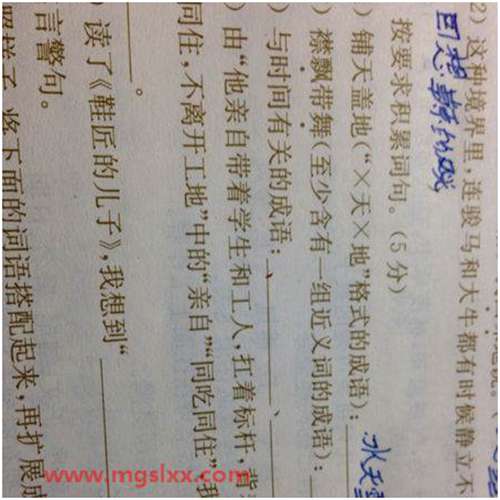 2）这种境界里，连骏马和大牛都有时候静立不
回想
按要求积累词句。（5分）
）铺天盖地（“×天×地”格式的成语）：冰天雪
）襟飘带舞（至少含有一组近义词的成语）：
）与时间有关的成语：、、
）由“他亲自带着学生和工人，扛着标杆，背
同住，不离开工地”中的“亲自”“同吃同住”我
。
读了《鞋匠的儿子》，我想到“
言警句。
照样子，将下面的词语搭配起来，再扩展成
www.mgslxx.com